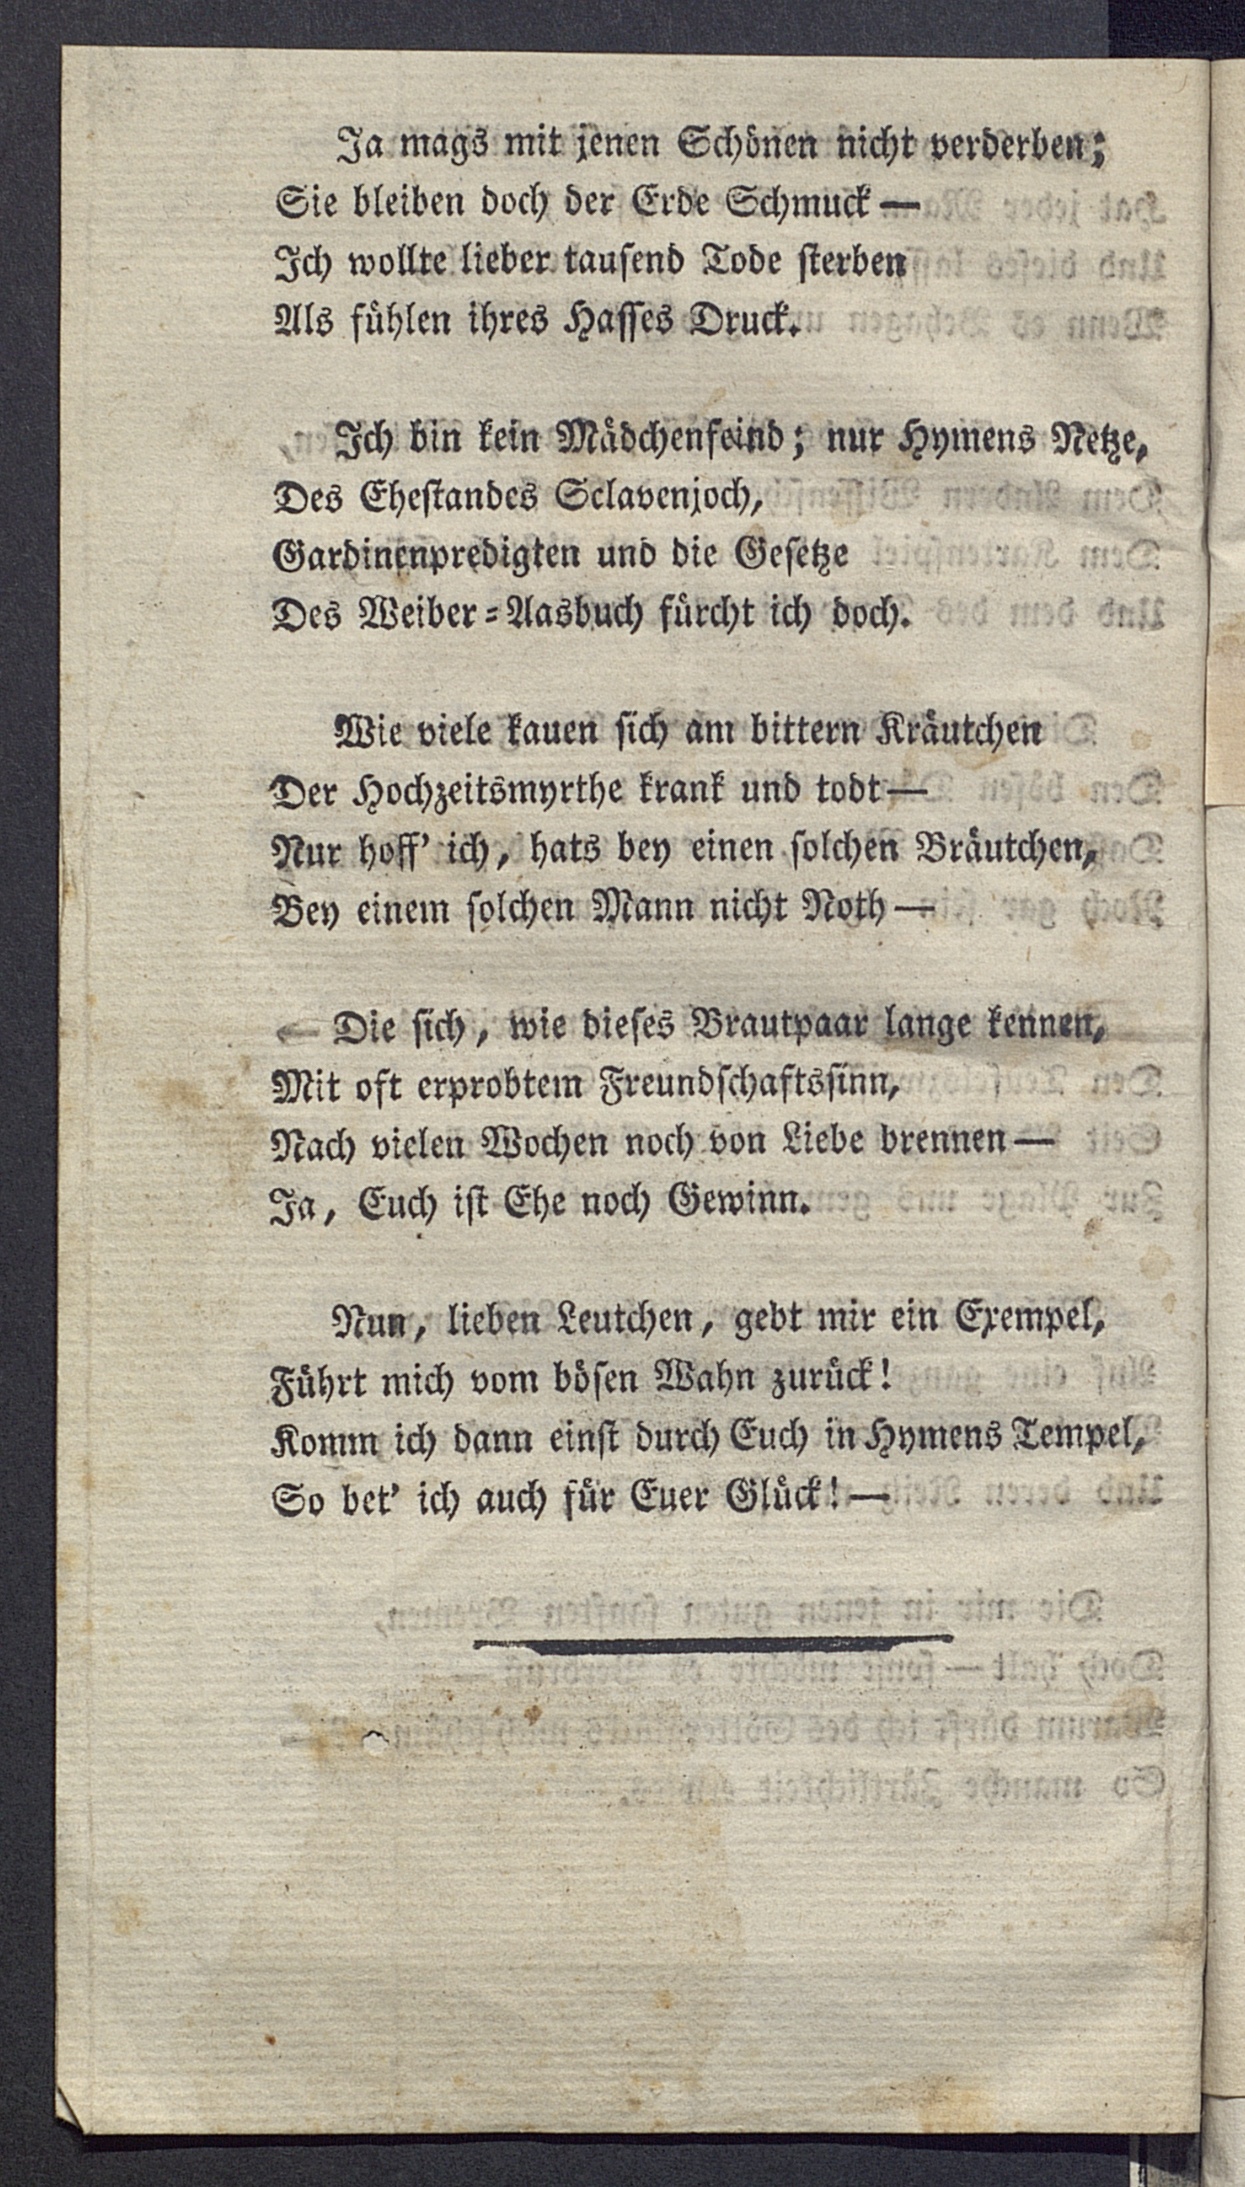 Ja mags mit jenen Schönen nicht verderben;
Sie bleiben doch der Erde Schmuck —
Ich wollte lieber tausend Tode sterben
Als fühlen ihres Hasses Druck.
Ich bin kein Mädchenfeind; nur Hymens Netze,
Des Ehestandes Sclavenjoch,
Gardinenpredigten und die Gesetze
Des Weiber-Aasbuch fürcht ich doch.
Wie viele kauen sich am bittern Kräutchen
Der Hochzeitsmyrthe krank und todt —
Nur hoff' ich, hats bey einen solchen Bräutchen,
Bey einem solchen Mann nicht Noth —
— Die sich, wie dieses Brautpaar lange kennen,
Mit oft erprobtem Freundschaftssinn,
Nach vielen Wochen noch von Liebe brennen —
Ja, Euch ist Ehe noch Gewinn.
Nun, lieben Leutchen, gebt mir ein Exempel,
Führt mich vom bösen Wahn zurück!
Komm ich dann einst durch Euch in Hymens Tempel,
So bet' ich auch für Euer Glück! —